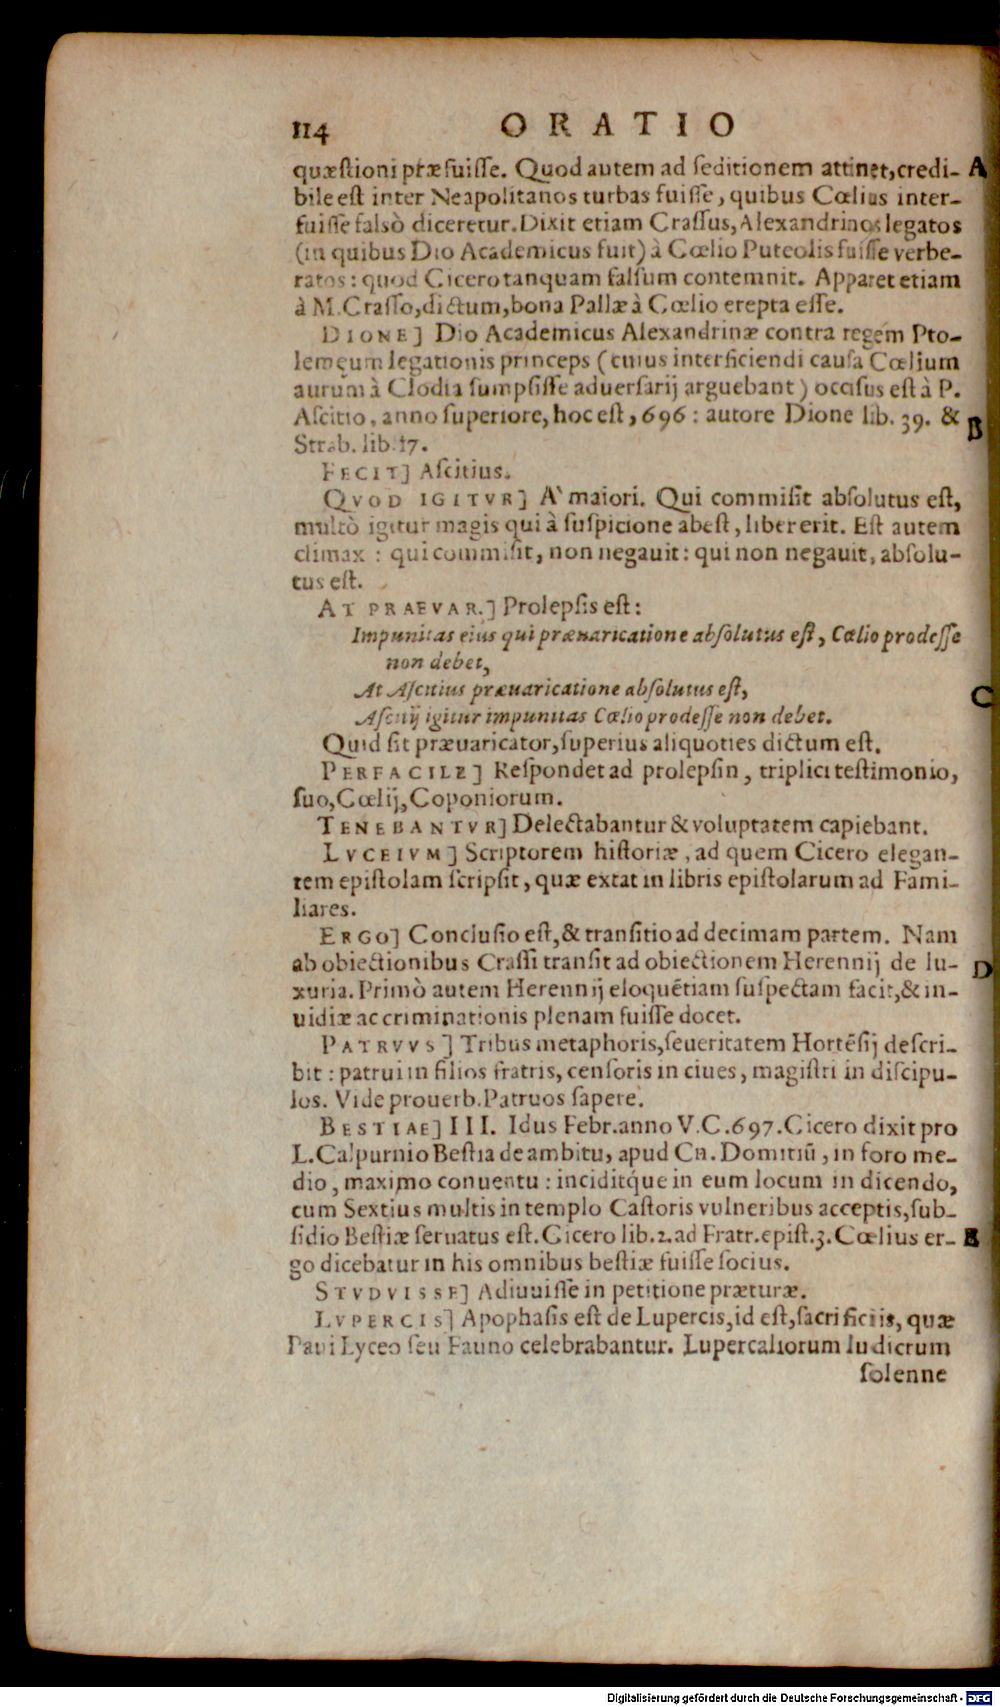 114 ORATIO
quæstioni præfuisse. Quod autem ad seditionem attinet, credi- A
bile est inter Neapolitanos turbas fuisse, quibus Cœlius inter-
fuisse falsò diceretur. Dixit etiam Crassus, Alexandrinos legatos
(in quibus Dio Academicus fuit) à Cœlio Puteolis fuisse verbe-
ratos: quod Cicero tanquam falsum contemnit. Apparet etiam
à M. Crasso, dictum, bona Pallæ à Cœlio erepta esse.
DIONE] Dio Academicus Alexandrinæ contra regem Pto-
lemęum legationis princeps (cuius interficiendi causa Cœlium
aurum à Clodia sumpsisse aduersarij arguebant) occisus est à P.
Ascitio, anno superiore, hoc est, 696: autore Dione lib. 39. & B
Strab. lib. 17.
FECIT] Ascitius.
QVOD IGITVR] A` maiori. Qui commisit absolutus est,
multò igitur magis qui à suspicione abest, liber erit. Est autem
climax: qui commisit, non negauit: qui non negauit, absolu-
tus est.
AT PRAEVAR.] Prolepsis est:
Impunitas eius qui præuaricatione absolutus est, Cœlio prodesse
non debet,
At Ascitius præuaricatione absolutus est, C
Ascitij igitur impunitas Cœlio prodesse non debet.
Quid sit præuaricator, superius aliquoties dictum est.
PERFACILE] Respondet ad prolepsin, triplici testimonio,
suo, Cœlij, Coponiorum.
TENEBANTVR] Delectabantur & voluptatem capiebant.
LVCEIVM] Scriptorem historiæ, ad quem Cicero elegan-
tem epistolam scripsit, quæ extat in libris epistolarum ad Fami-
liares.
ERGO] Conclusio est, & transitio ad decimam partem. Nam
ab obiectionibus Crassi transit ad obiectionem Herennij de lu- D
xuria. Primò autem Herennij eloquẽtiam suspectam facit, & in-
uidiæ ac criminationis plenam fuisse docet.
PATRVVS] Tribus metaphoris, seueritatem Hortẽsij descri-
bit: patrui in filios fratris, censoris in ciues, magistri in discipu-
los. Vide prouerb. Patruos sapere.
BESTIAE] III. Idus Febr. anno V.C. 697. Cicero dixit pro
L. Calpurnio Bestia de ambitu, apud Cn. Domitiũ, in foro me-
dio, maximo conuentu: inciditq́ue in eum locum in dicendo,
cum Sextius multis in templo Castoris vulneribus acceptis, sub-
sidio Bestiæ seruatus est. Cicero lib. 2. ad Fratr. epist. 3. Cœlius er- E
go dicebatur in his omnibus bestiæ fuisse socius.
STVDVISSE] Adiuuisse in petitione præturæ.
LVPERCIS] Apophasis est de Lupercis, id est, sacrificiis, quæ
Pani Lyceo seu Fauno celebrabantur. Lupercaliorum ludicrum
solenne
Digitalisierung gefördert durch die Deutsche Forschungsgemeinschaft - DFG